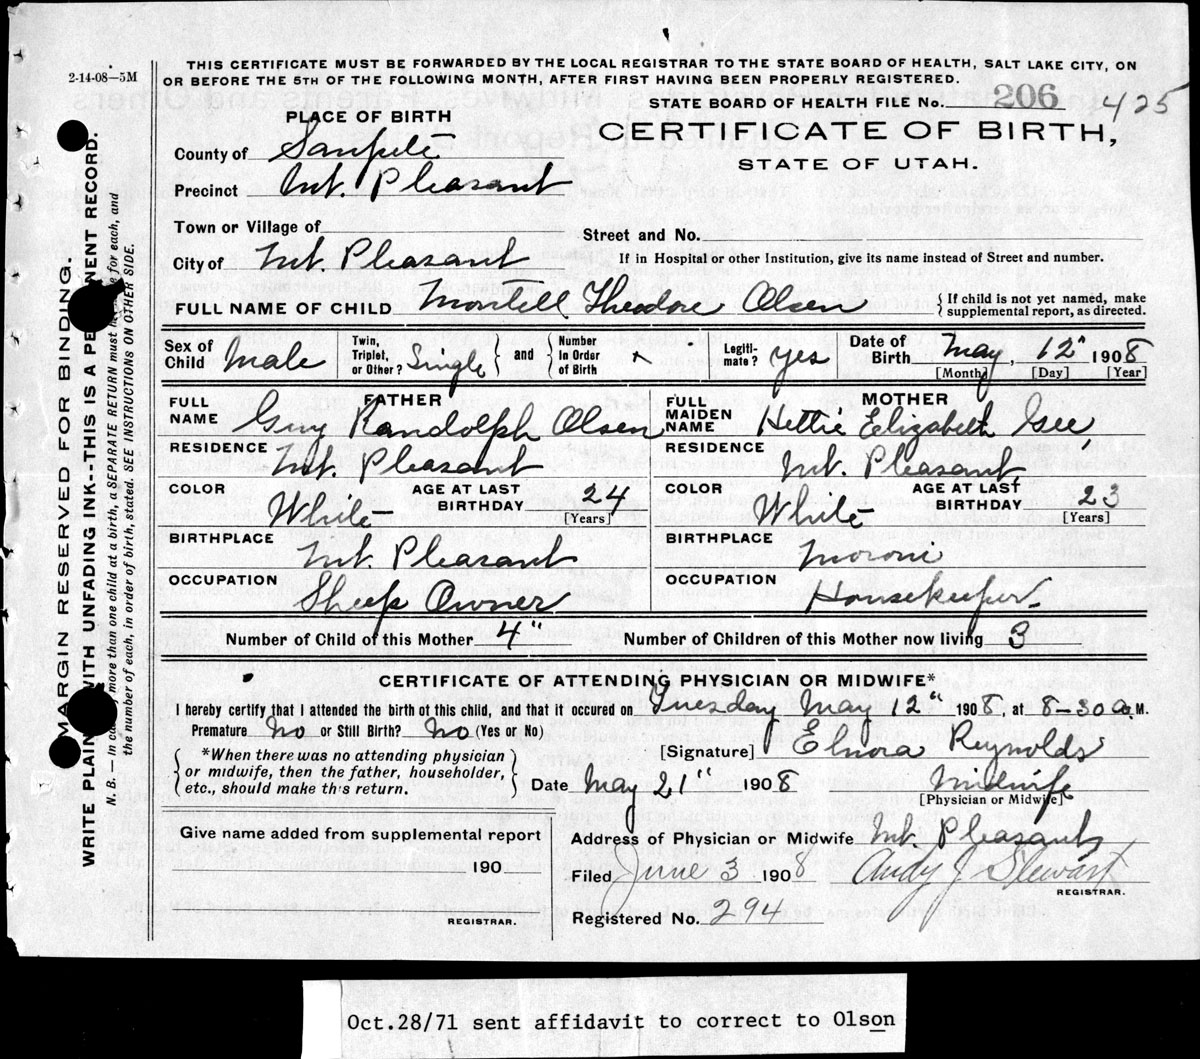 2-14-08—5M
THIS CERTIFICATE MUST BE FORWARDED BY THE LOCAL REGISTRAR TO THE STATE BOARD OF HEALTH, SALT LAKE CITY, ON
OR BEFORE THE 5TH OF THE FOLLOWING MONTH, AFTER FIRST HAVING BEEN PROPERLY REGISTERED.
STATE BOARD OF HEALTH FILE No. 206 425
PLACE OF BIRTH
CERTIFICATE OF BIRTH,
STATE OF UTAH.
County of Sanpete
Precinct Mt. Pleasant
Town or Village of
Street and No.
City of Mt. Pleasant
If in Hospital or other Institution, give its name instead of Street and number.
FULL NAME OF CHILD Montell Theodore Olsen
{ If child is not yet named, make
supplemental report, as directed.
Sex of Child Male
Twin, Triplet, or Other? Single } and { Number In Order of Birth
Legitimate? yes
Date of Birth May, 12" 1908
[Month] [Day] [Year]
FATHER
FULL NAME Guy Randolph Olsen
RESIDENCE Mt. Pleasant
COLOR White AGE AT LAST BIRTHDAY 24 [Years]
BIRTHPLACE Mt. Pleasant
OCCUPATION Sheep Owner
MOTHER
FULL MAIDEN NAME Hettie Elizabeth Gee
RESIDENCE Mt. Pleasant
COLOR White AGE AT LAST BIRTHDAY 23 [Years]
BIRTHPLACE Moroni
OCCUPATION Housekeeper
Number of Child of this Mother 4" Number of Children of this Mother now living 3
CERTIFICATE OF ATTENDING PHYSICIAN OR MIDWIFE*
I hereby certify that I attended the birth of this child, and that it occured on Tuesday May 12" 1908, at 8-30 a. M.
Premature No or Still Birth? No (Yes or No)
[Signature] Elnora Reynolds
{ *When there was no attending physician
or midwife, then the father, householder,
etc., should make this return. }
Date May 21" 1908 Midwife
[Physician or Midwife]
Give name added from supplemental report
190
REGISTRAR.
Address of Physician or Midwife Mt. Pleasant
Filed June 3 1908 Andy J Stewart
REGISTRAR.
Registered No. 294
MARGIN RESERVED FOR BINDING.
WRITE PLAIN WITH UNFADING INK--THIS IS A PE NENT RECORD.
N. B. — In ca more than one child at a birth, a SEPARATE RETURN must for each, and
the number of each, in order of birth, stated. SEE INSTRUCTIONS ON OTHER SIDE.
Oct.28/71 sent affidavit to correct to Olson